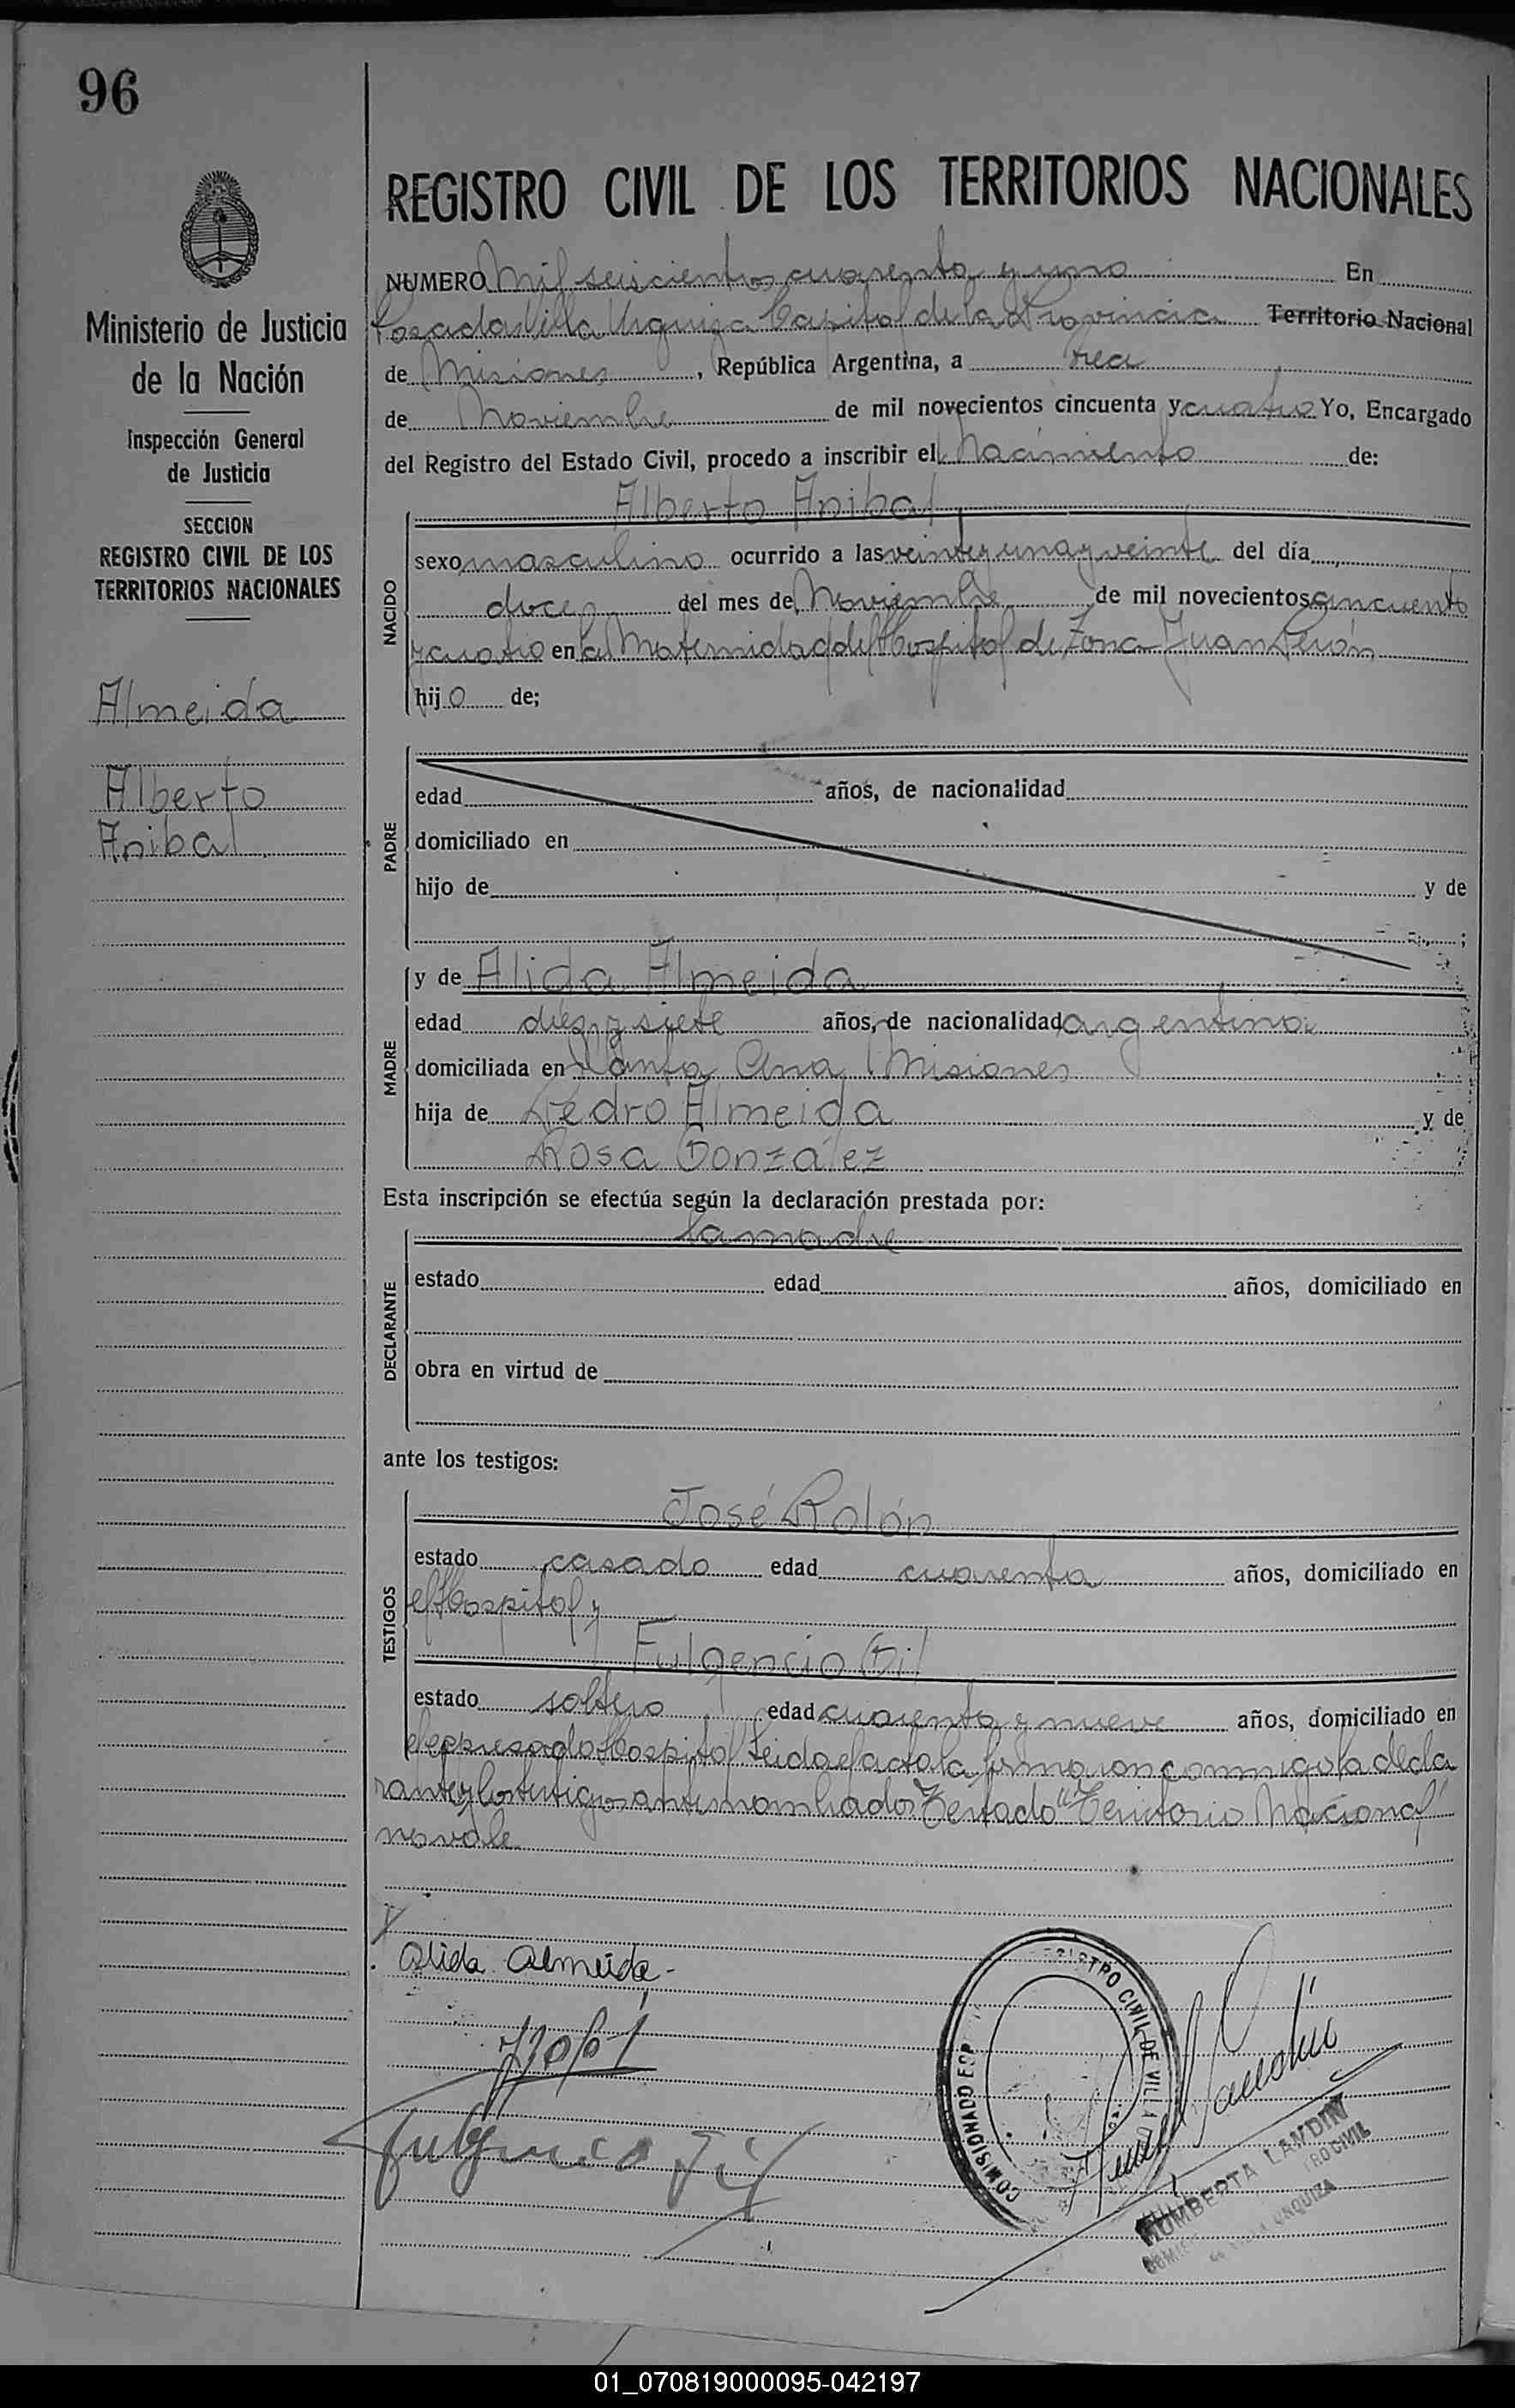 96
Ministerio de Justicia
de la Nación
Inspección General
de Justicia
SECCION
REGISTRO CIVIL DE LOS
TERRITORIOS NACIONALES
Almeida
Alberto
Anibal
REGISTRO CIVIL DE LOS TERRITORIOS NACIONALES
NUMERO Mil seiscientos cuarenta y uno En
Posadas Villa Urquiza Capital de la Provincia Territorio Nacional
de Misiones, República Argentina, a
de Noviembre de mil novecientos cincuenta y cuatro Yo, Encargado
del Registro del Estado Civil, procedo a inscribir el Nacimiento de:
Alberto Anibal
NACIDO
sexo masculino ocurrido a las veinte y una y veinte del día
doce del mes de Noviembre de mil novecientos cincuenta
y cuatro en la Maternidad del Hospital de Zona Juan Perón
hijo de;
PADRE
edad años, de nacionalidad
domiciliado en
hijo de y de
;
MADRE
y de Alida Almeida
edad diez y siete años, de nacionalidad argentina
domiciliada en Santa Ana, Misiones
hija de Pedro Almeida y de
Rosa González
Esta inscripción se efectúa según la declaración prestada por:
la madre
DECLARANTE
estado edad años, domiciliado en
obra en virtud de
ante los testigos:
TESTIGOS
José Rolón
estado casado edad cuarenta años, domiciliado en
el Hospital y
Fulgencio Gil
estado soltero edad cuarenta y nueve años, domiciliado en
el expresado Hospital Leida el acta la firmaron conmigo la decla
rante y los testigos antes nombrados Testado "Territorio Nacional"
no vale
Alida Almeida.-
Fulgencio Gil
REGISTRO CIVIL DE VILLA
COMISIONADO ESP
HUMBERTA LANDIN
URQUIZA
01_070819000095-042197